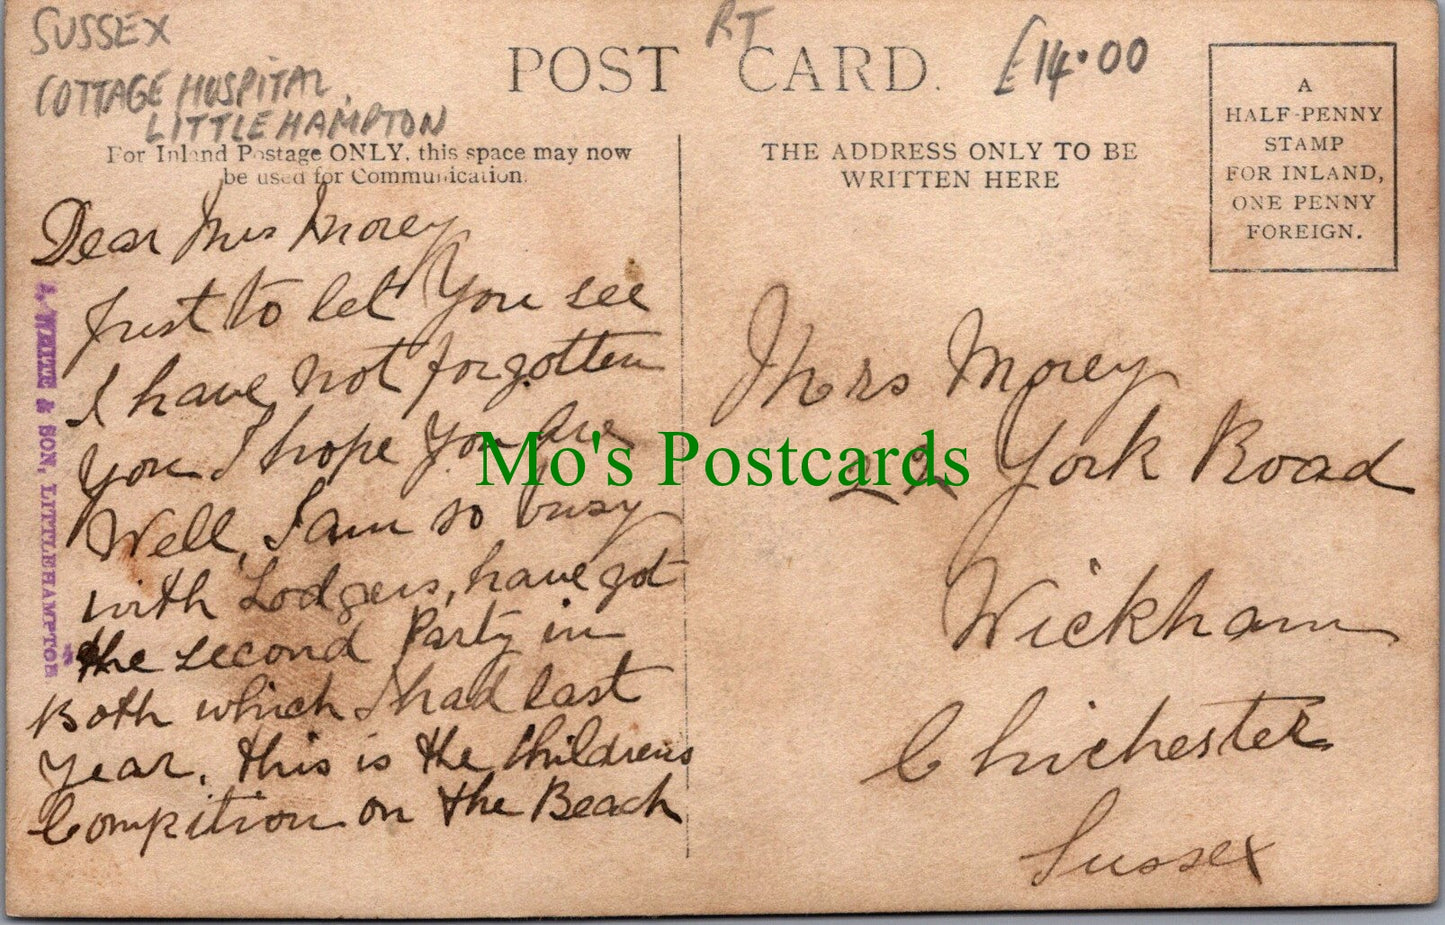 SUSSEX
COTTAGE HOSPITAL.
LITTLEHAMPTON
RT
£14.00
POST CARD.
For Inland Postage ONLY, this space may now
be used for Communication.
THE ADDRESS ONLY TO BE
WRITTEN HERE
A
HALF-PENNY
STAMP
FOR INLAND,
ONE PENNY
FOREIGN.
Dear Mrs Morey
Just to let you see
I have not forgotten
you I hope you are
Well, I am so busy
with Lodgers, have got
the second Party in
Both which I had last
year. this is the Childrens
Compition on the Beach
WHITE & SON, LITTLEHAMPTON
Mrs Morey
22 York Road
Wickham
Chichester
Sussex
Mo's Postcards